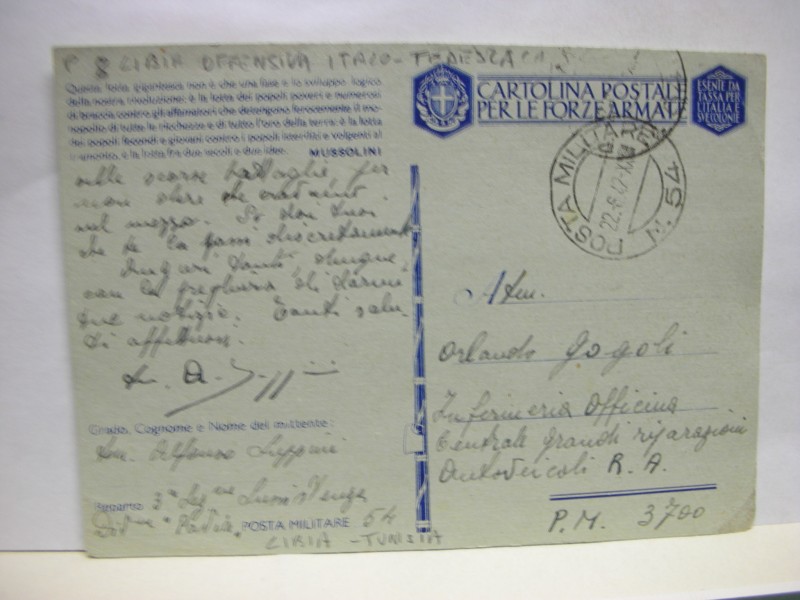 8 LIBIA OFFENSIVA ITALO-TEDESCA
Questa lotta gigantesca non è che una fase e lo sviluppo logico
della nostra rivoluzione: è la lotta dei popoli poveri e numerosi
di braccia contro gli affamatori che detengono ferocemente il mo-
nopolio di tutte le ricchezze e di tutto l'oro della terra; è la lotta
dei popoli fecondi e giovani contro i popoli isteriliti e volgenti al
tramonto, è la lotta fra due secoli e due idee.
MUSSOLINI
CARTOLINA POSTALE
PER LE FORZE ARMATE
ESENTE DA
TASSA PER
L'ITALIA E
SVE COLONIE
POSTA MILITARE N. 54
22.6.42.XX
scorse battaglie, per
nel mezzo. So dai tuoi
che te la passi discretamente
Auguri tanti dunque,
con la preghiera di darmi
tue notizie. Tanti salu-
ti affettuosi.
Grado, Cognome e Nome del mittente:
Ten. Alfonso
Reparto
POSTA MILITARE 54
LIBIA - TUNISIA
Orlando Gogoli
Infermeria Officina
Centrale grandi riparazioni
Autoveicoli R. A.
P. M. 3700